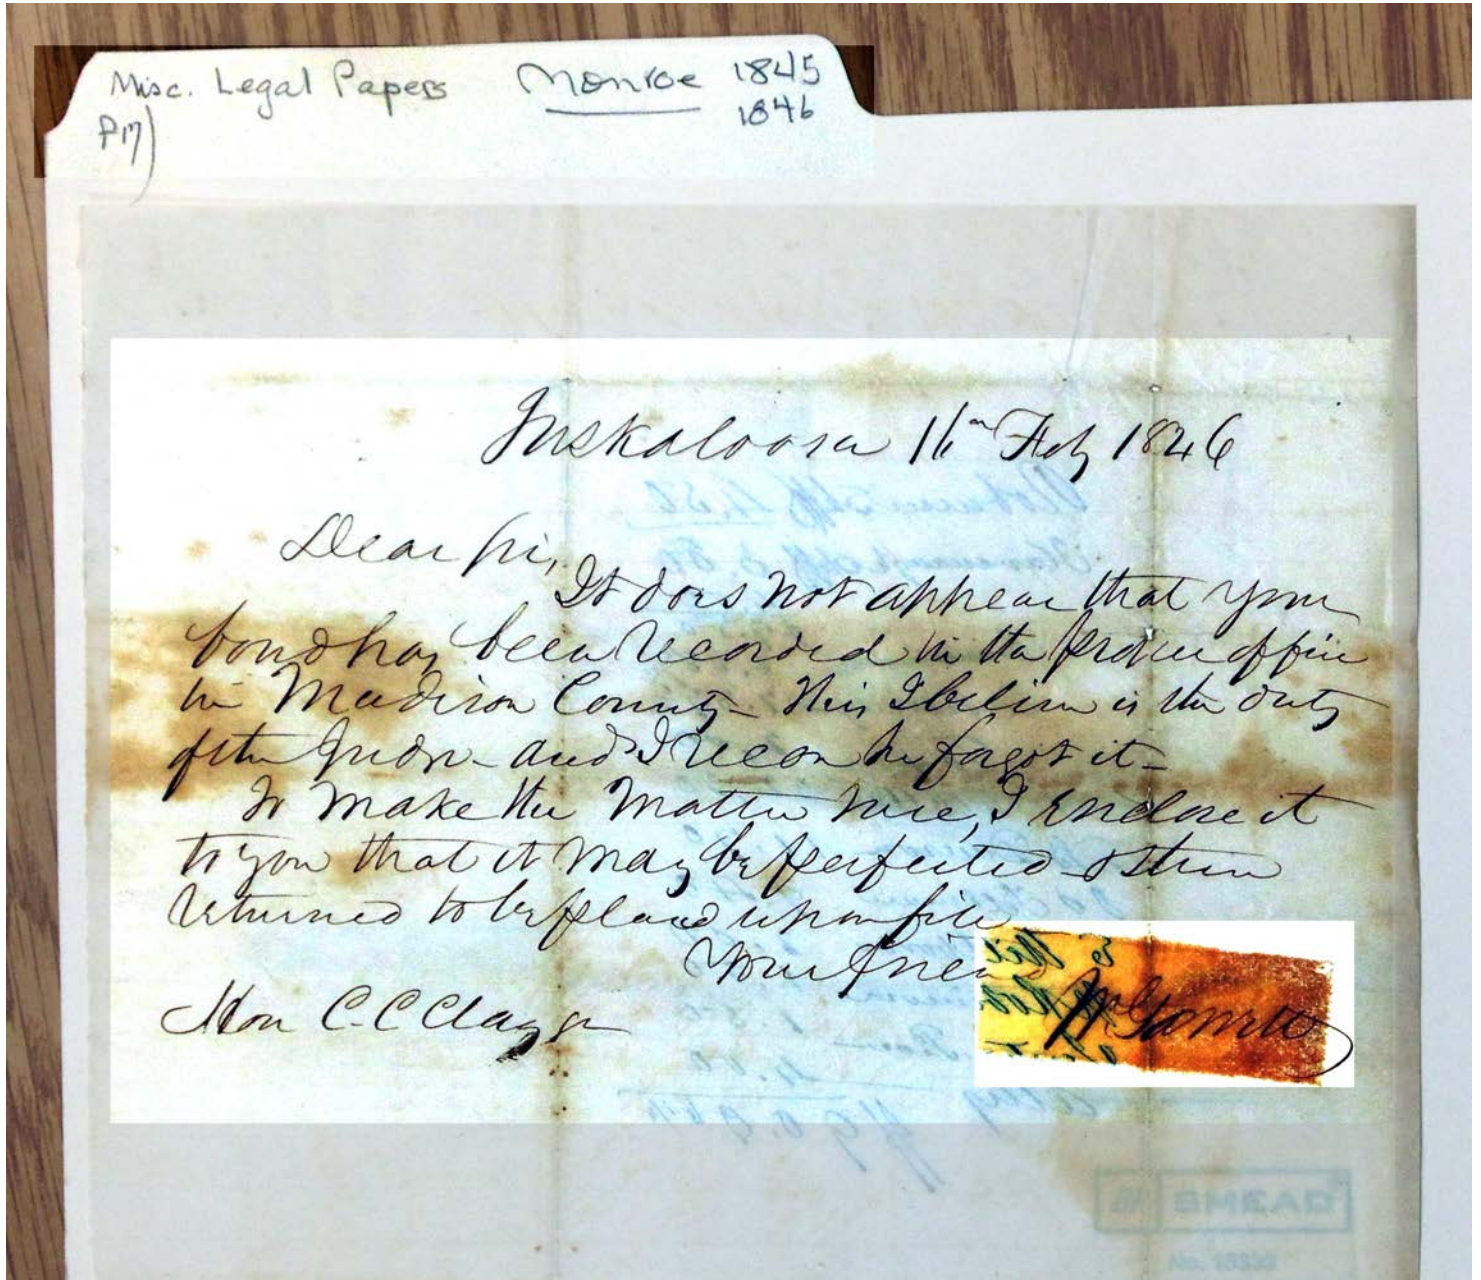 Misc. Legal Papers Monroe 1845
1846
P17)
Tuskaloosa 16th Feby 1846
Dear Sir,
It does not appear that your
bond has been recorded in the proper office
in Madison County - This I believe is the duty
of the Judge - and I recon he forgot it -
To make the matter sure, I enclose it
to you that it may be perfected & then
returned to be placed upon file
Your friend
W Garrett
Hon C. C Clay Jr
SMEAD